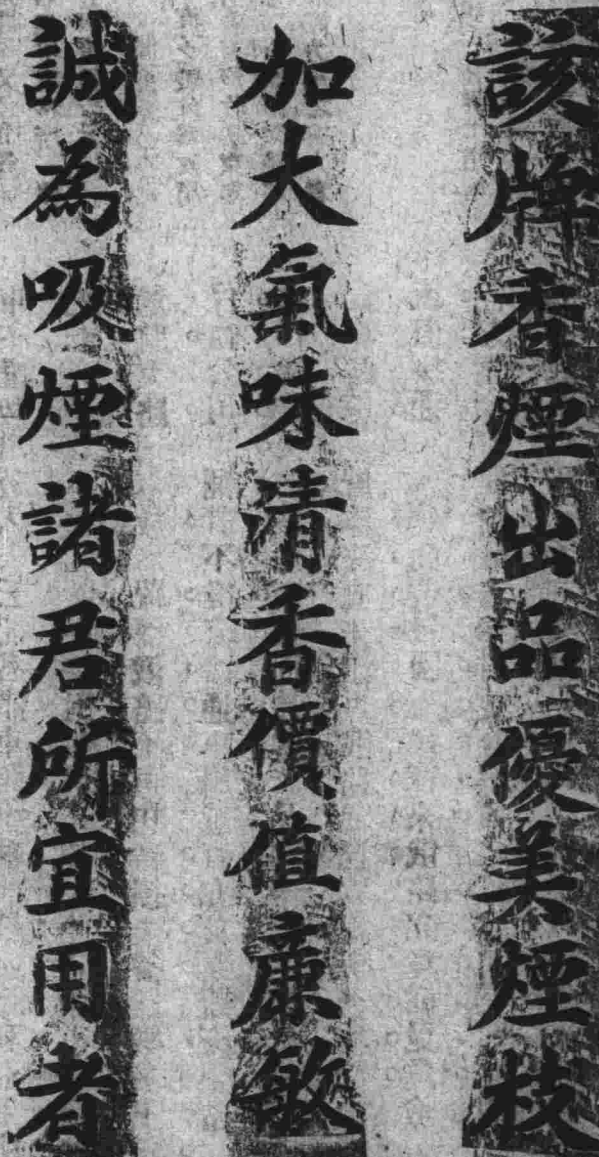 該牌香煙出品優美煙枝
加大氣味清香價值廉敏
誠為吸煙諸君所宜用者